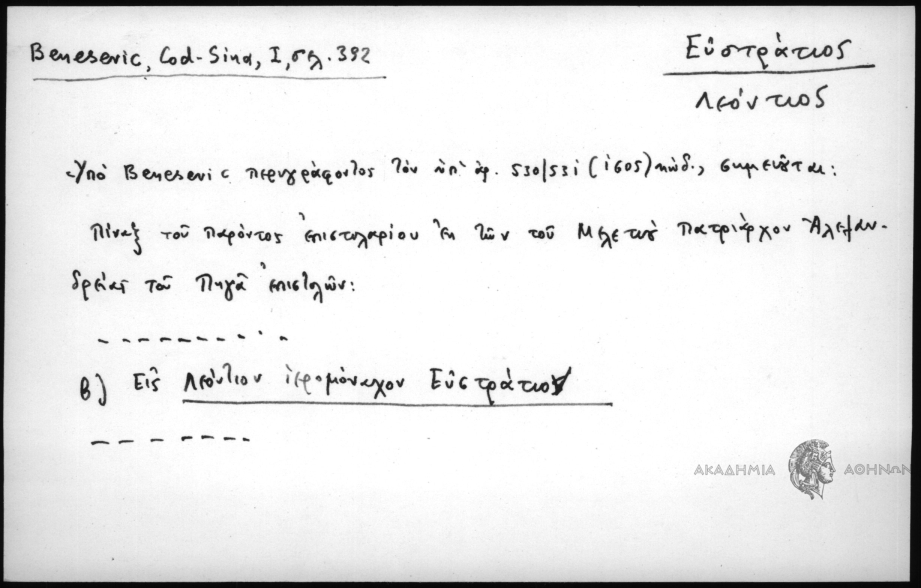 Benesevic, Cod-Sina, I, σελ. 392
Εὐστράτιος
Λεόντιος
Ὑπὸ Benesevic περιγράφοντος τὸν ὑπ' ἀρ. 530/531 (1605) κώδ., σημειοῦται:
Πίναξ τοῦ παρόντος ἐπιστολαρίου ἐκ τῶν τοῦ Μελετίου Πατριάρχου Ἀλεξαν-
δρείας τοῦ Πηγᾶ ἐπιστολῶν:
β) Εἰς Λεόντιον ἱερομόναχον Εὐστράτιον
ΑΚΑΔΗΜΙΑ ΑΘΗΝΩΝ